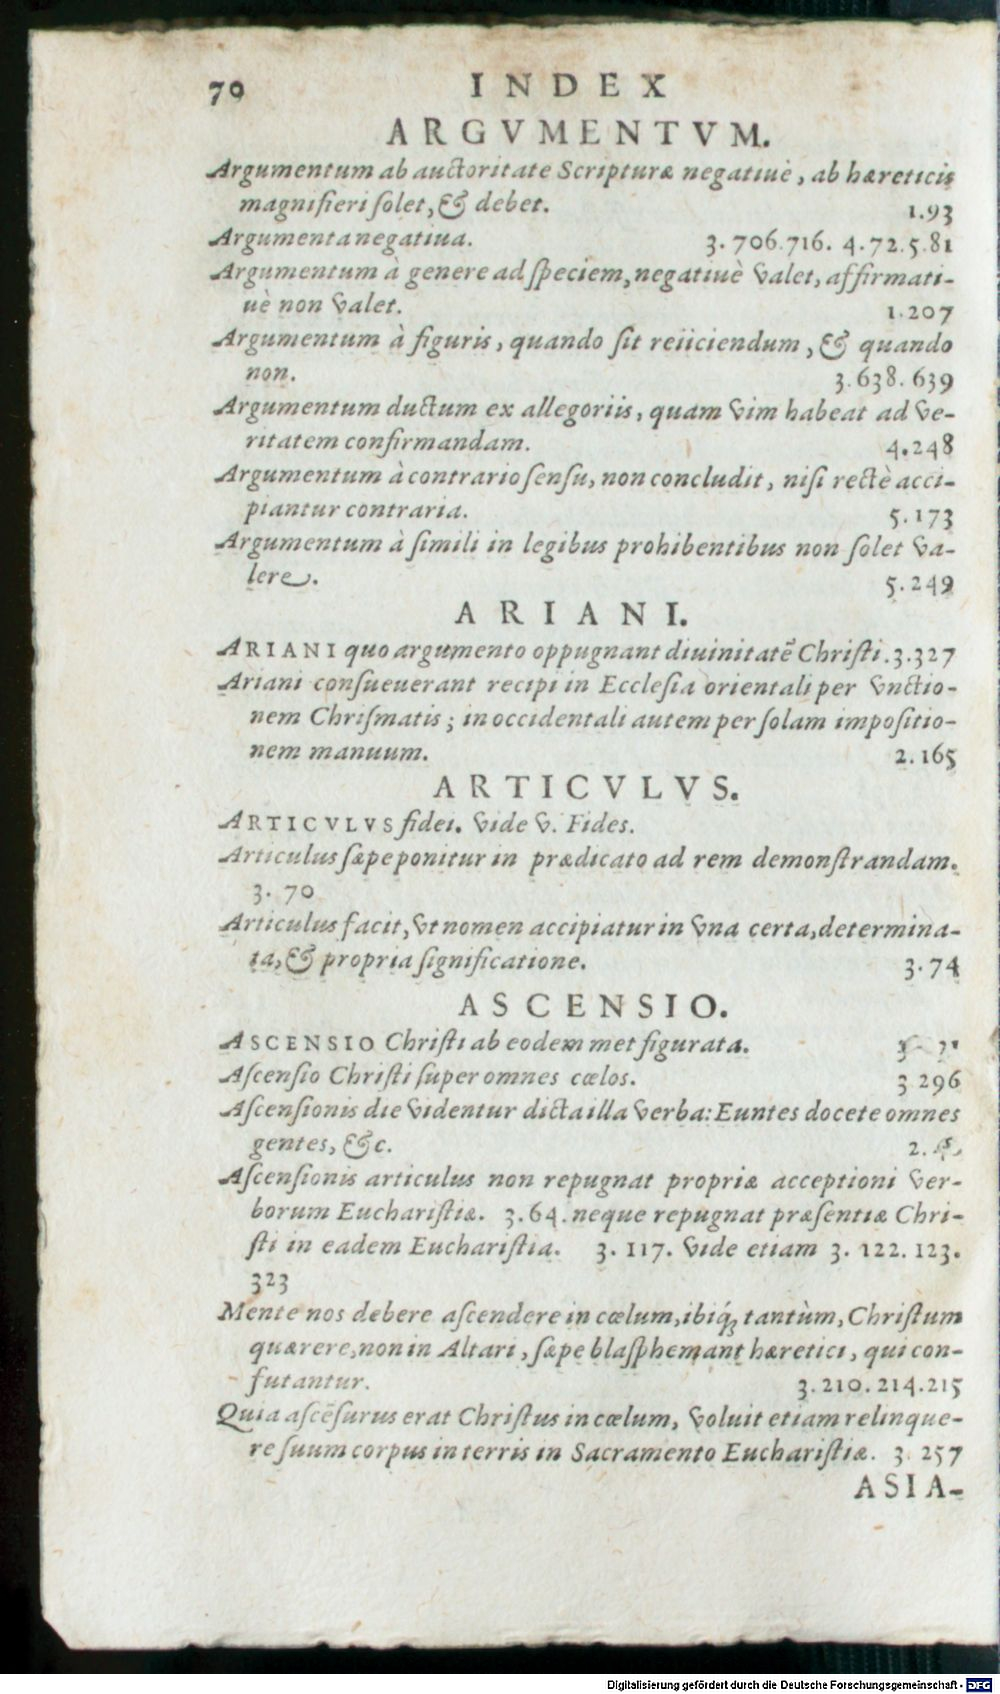 70 INDEX
ARGVMENTVM.
Argumentum ab auctoritate Scripturæ negatiuè, ab hæreticis
magnifieri ſolet, & debet. 1.93
Argumenta negatiua. 3. 706.716. 4.72.5.81
Argumentum à genere ad ſpeciem, negatiuè valet, affirmati-
uè non valet. 1.207
Argumentum à figuris, quando ſit reiiciendum, & quando
non. 3.638.639
Argumentum ductum ex allegoriis, quam vim habeat ad ve-
ritatem confirmandam. 4.248
Argumentum à contrario ſenſu, non concludit, niſi rectè acci-
piantur contraria. 5.173
Argumentum à ſimili in legibus prohibentibus non ſolet va-
lere. 5.249
ARIANI.
ARIANI quo argumento oppugnant diuinitatē Chriſti. 3.327
Ariani conſueuerant recipi in Eccleſia orientali per vnctio-
nem Chriſmatis; in occidentali autem per ſolam impoſitio-
nem manuum. 2.165
ARTICVLVS.
ARTICVLVS fidei. vide v. Fides.
Articulus ſæpe ponitur in prædicato ad rem demonſtrandam.
3. 70
Articulus facit, vt nomen accipiatur in vna certa, determina-
ta, & propria ſignificatione. 3.74
ASCENSIO.
ASCENSIO Chriſti ab eodem met figurata.
Aſcenſio Chriſti ſuper omnes cœlos. 3 296
Aſcenſionis die videntur dicta illa verba: Euntes docete omnes
gentes, &c. 2.
Aſcenſionis articulus non repugnat propriæ acceptioni ver-
borum Euchariſtiæ. 3.64. neque repugnat præſentiæ Chri-
ſti in eadem Euchariſtia. 3. 117. vide etiam 3. 122. 123.
323
Mente nos debere aſcendere in cœlum, ibiq́ꝫ tantùm, Chriſtum
quærere, non in Altari, ſæpe blaſphemant hæretici, qui con-
futantur. 3.210.214.215
Quia aſcēſurus erat Chriſtus in cœlum, voluit etiam relinque-
re ſuum corpus in terris in Sacramento Euchariſtiæ. 3. 257
ASIA-
Digitalisierung gefördert durch die Deutsche Forschungsgemeinschaft - DFG